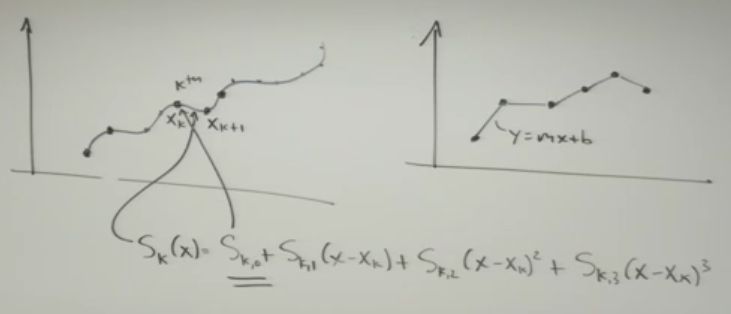 kᵗʰ
xₖ xₖ₊₁
y=mx+b
Sₖ(x)= Sₖ,₀ + Sₖ,₁(x-xₖ) + Sₖ,₂(x-xₖ)² + Sₖ,₃(x-xₖ)³